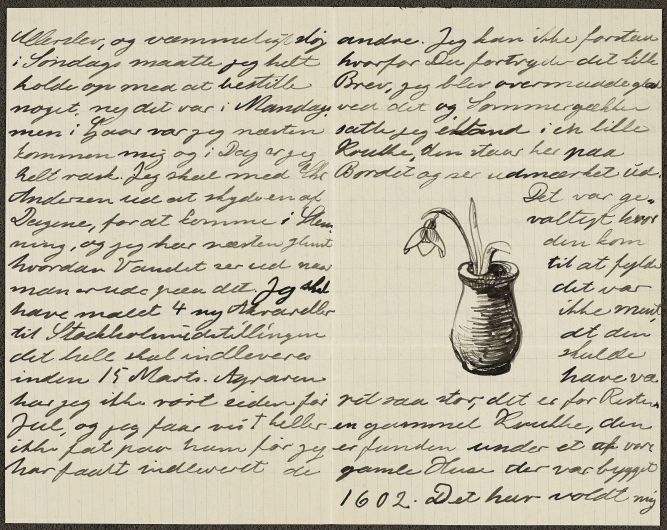 Ullerslev, og væmmeligt støj
i Søndags maatte jeg helt
holde op med at bestille
noget, nej det var i Mandags
men i Gaar var jeg næsten
kommen mig og i Dag er jeg
helt rask. Jeg skal med Chr
Andersen ud at skyde en af
Dagene, for at komme i Stem
ning, og jeg har næsten glemt
hvordan Vandet ser ud naar
man er ude paa det. Jeg skal
have malet 4 ny Akvareller
til Stockholmudstillingen
det hele skal indleveres
inden 15 Marts. Agraren
har jeg ikke rørt siden før
Jul, og jeg faar vist heller
ikke fat paa ham før jeg
har faaet indleveret de
andre. Jeg kan ikke forstaa
hvorfor Du fortryder det lille
Brev, jeg blev overmaade glad
ved det og Sommergækken
satte jeg i en lille
Krukke, den staar her paa
Bordet og ser udmærket ud.
Det var ge-
valtigt hvor
den kom
til at fylde
det var
ikke ment
at den
skulde
have væ
ret saa stor, det er for Resten
en gammel Krukke, den
er funden under et af vore
gamle Huse der var bygget
1602. Det har voldt mig